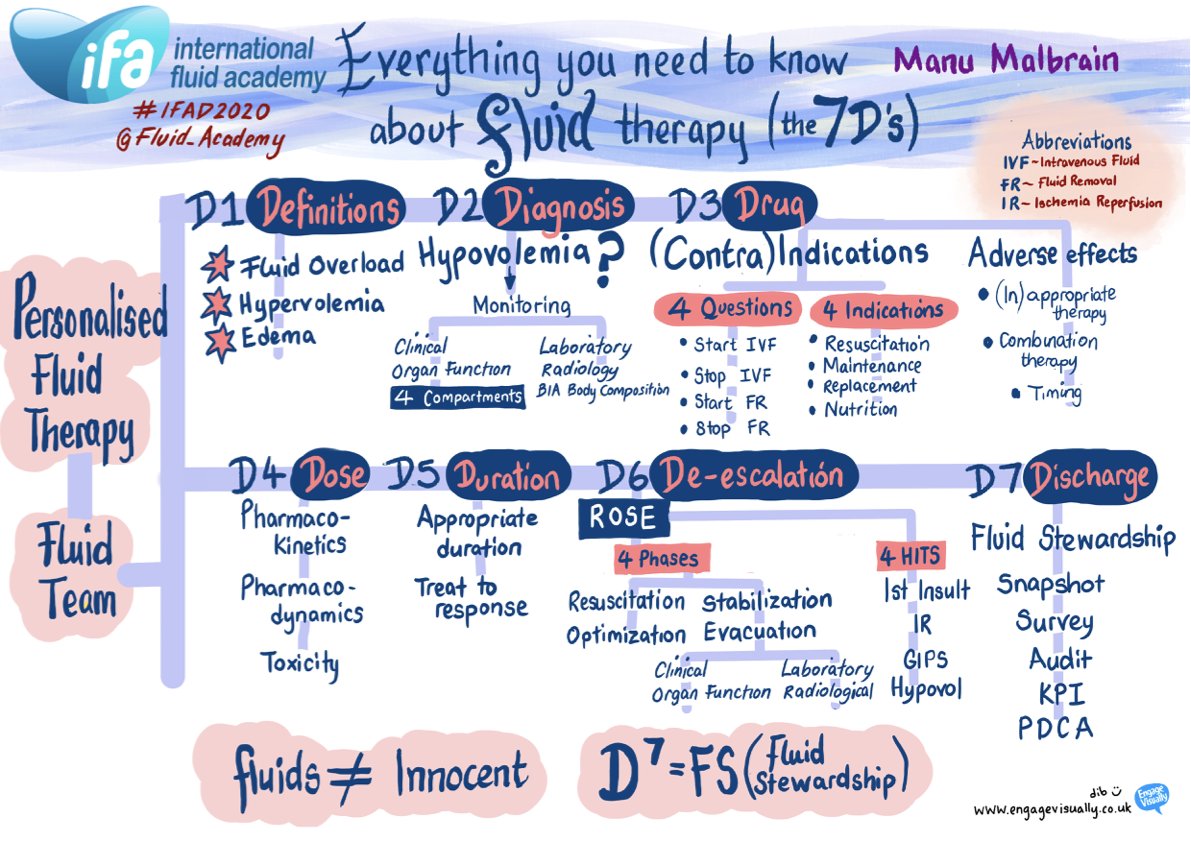 ifa
international
fluid academy
#IFAD2020
@Fluid_Academy
Everything you need to know
about fluid therapy (the 7D's)
Manu Malbrain
Abbreviations
IVF ~ Intravenous Fluid
FR ~ Fluid Removal
IR ~ Ischemia Reperfusion
Personalised
Fluid
Therapy
Fluid
Team
D1 Definitions
Fluid Overload
Hypervolemia
Edema
D2 Diagnosis
Hypovolemia?
Monitoring
Clinical
Organ Function
4 Compartments
Laboratory
Radiology
BIA Body Composition
D3 Drug
(Contra)Indications
4 Questions
• Start IVF
• Stop IVF
• Start FR
• Stop FR
4 Indications
• Resuscitation
• Maintenance
• Replacement
• Nutrition
Adverse effects
• (In)appropriate
therapy
• Combination
therapy
• Timing
D4 Dose
Pharmaco-
kinetics
Pharmaco-
dynamics
Toxicity
D5 Duration
Appropriate
duration
Treat to
response
D6 De-escalation
ROSE
4 Phases
Resuscitation
Optimization
Stabilization
Evacuation
Clinical
Organ Function
Laboratory
Radiological
4 HITS
1st Insult
IR
GIPS
Hypovol
D7 Discharge
Fluid Stewardship
Snapshot
Survey
Audit
KPI
PDCA
fluids ≠ Innocent
D⁷ = FS (Fluid
Stewardship)
dib
www.engagevisually.co.uk
Engage
Visually